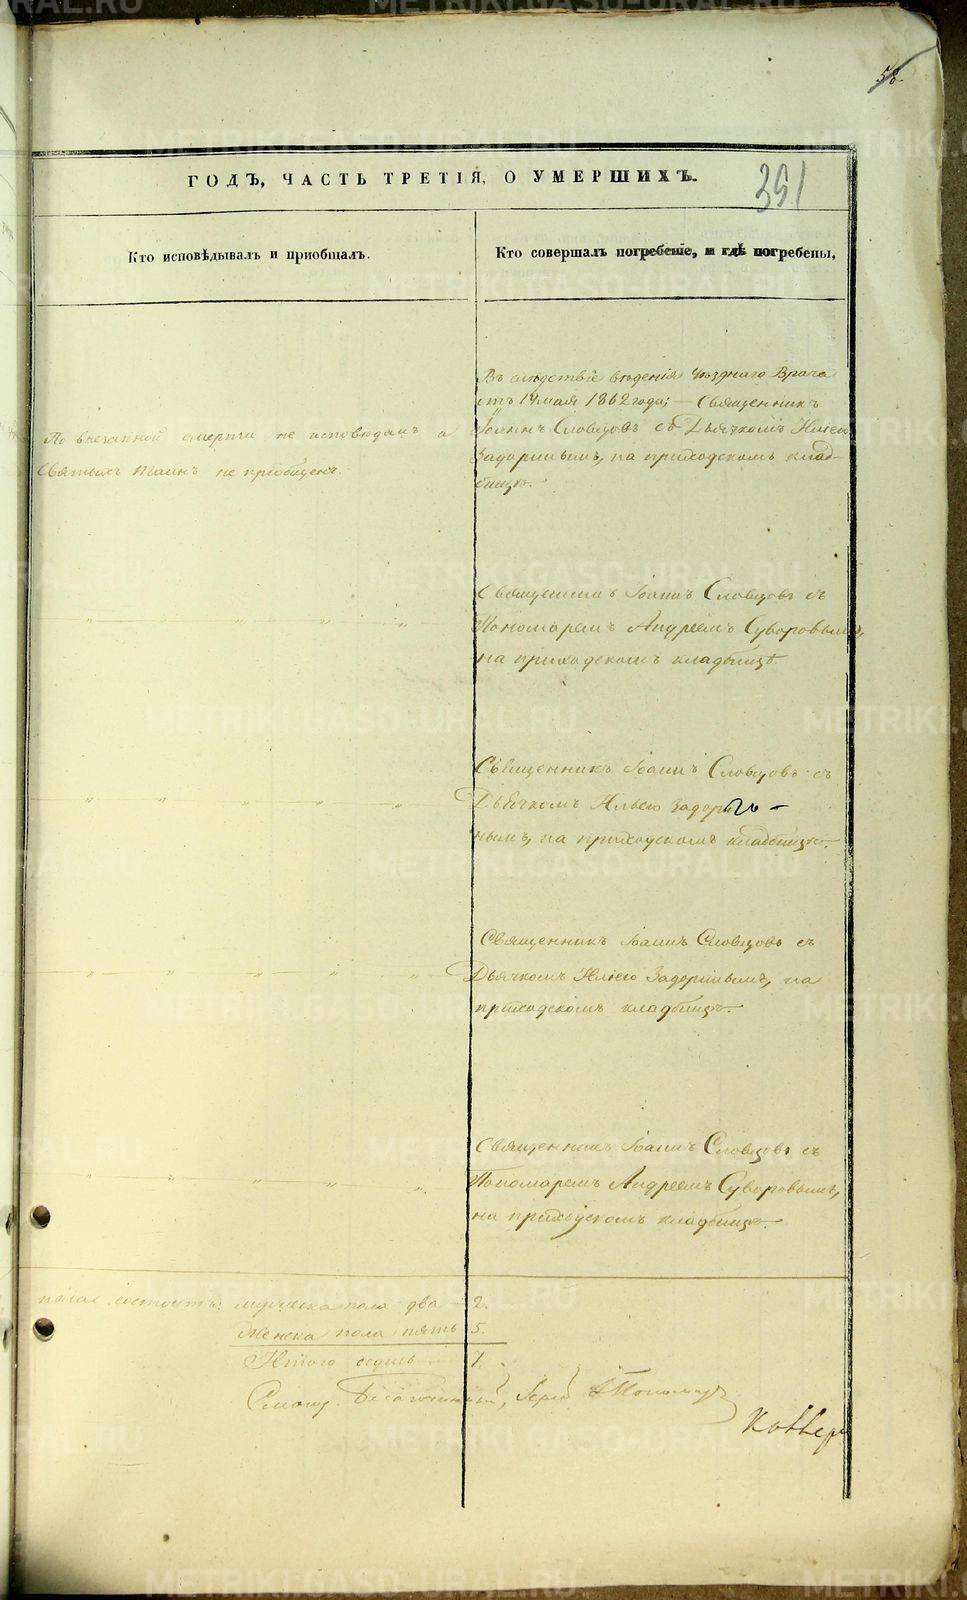 58.
ГОДЪ, ЧАСТЬ ТРЕТІЯ, О УМЕРШИХЪ.
391
Кто исповѣдывалъ и пріобщалъ.
Кто совершалъ погребеніе, и гдѣ погребены,
По внезапной смерти не исповѣданъ и
Святыхъ таинъ не пріобщенъ.
Въ слѣдствіе вѣденія Уѣзднаго Врача
отъ 19 мая 1862 года; — Священникъ
Іоаннъ Словцовъ съ Дьячкомъ Иліею
Задоринымъ, на приходскомъ клад-
бищѣ.
Священникъ Іоаннъ Словцовъ съ
Пономаремъ Андреемъ Суворовымъ,
на приходскомъ кладбищѣ.
Священникъ Іоаннъ Словцовъ съ
Дьячкомъ Иліею Задори-
нымъ, на приходскомъ кладбищѣ.
Священникъ Іоаннъ Словцовъ съ
Дьячкомъ Иліею Задоринымъ, на
приходскомъ кладбищѣ.
Священникъ Іоаннъ Словцовъ съ
Пономаремъ Андреемъ Суворовымъ,
на приходскомъ кладбищѣ.
состоитъ: мужеска пола два — 2.
Женска пола пять 5.
Итого седмь 7.
Благочинный, Іерей
METRIKI.GASO-URAL.RU